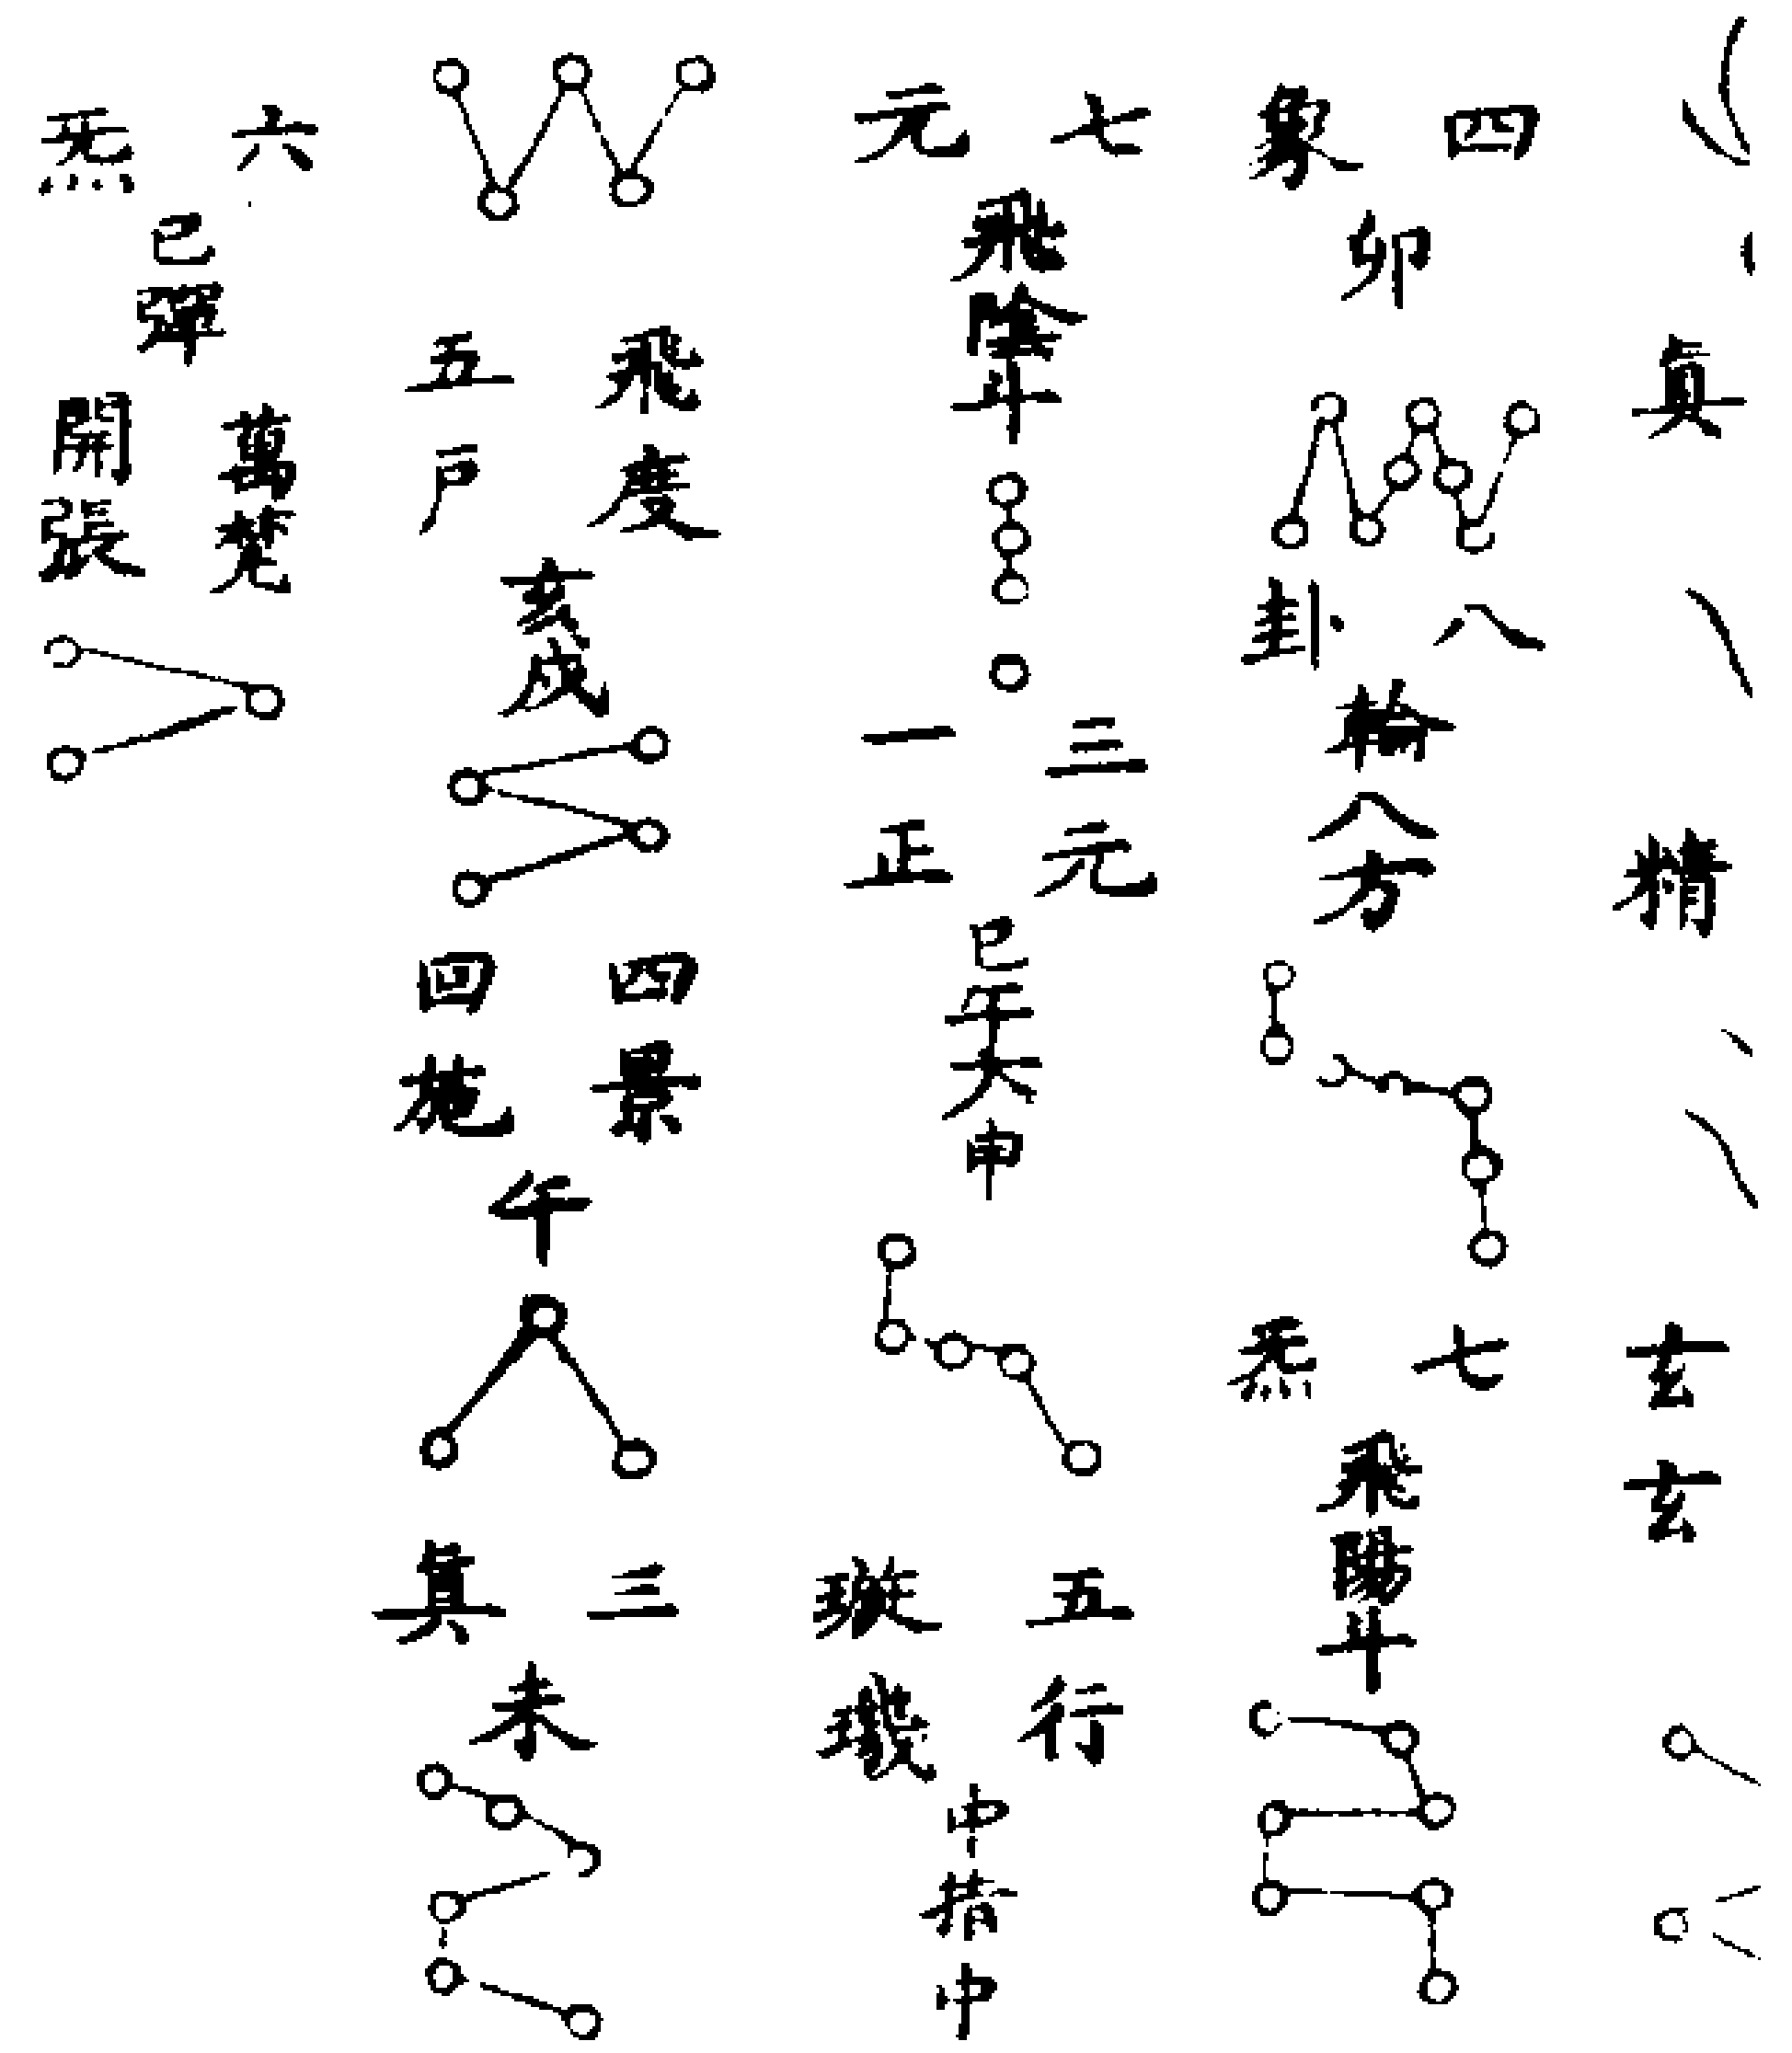 真
精
玄
玄
四象
卯
八卦
輪
八
方
七炁
飛
陽
斗
七元
飛
陰
斗
三元
一正
巳
午
大
申
五行
璇璣
中
指
中
飛度
五戸
亥
戌
四景
回施
午
三真
未
六炁
巳
彈
萬梵
開張